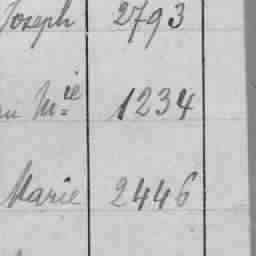 Joseph 2793
M.ie 1234
Marie 2446